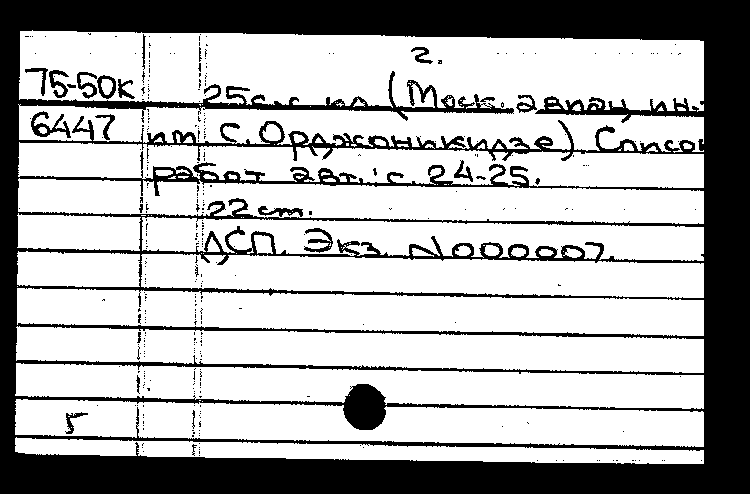 2.
75-50к 25с. с ил. (Моск. авиац. ин-т
6447 им. С. Орджоникидзе). Список
работ авт.: с. 24-25.
22 см.
ДСП. Экз. N000007.
5